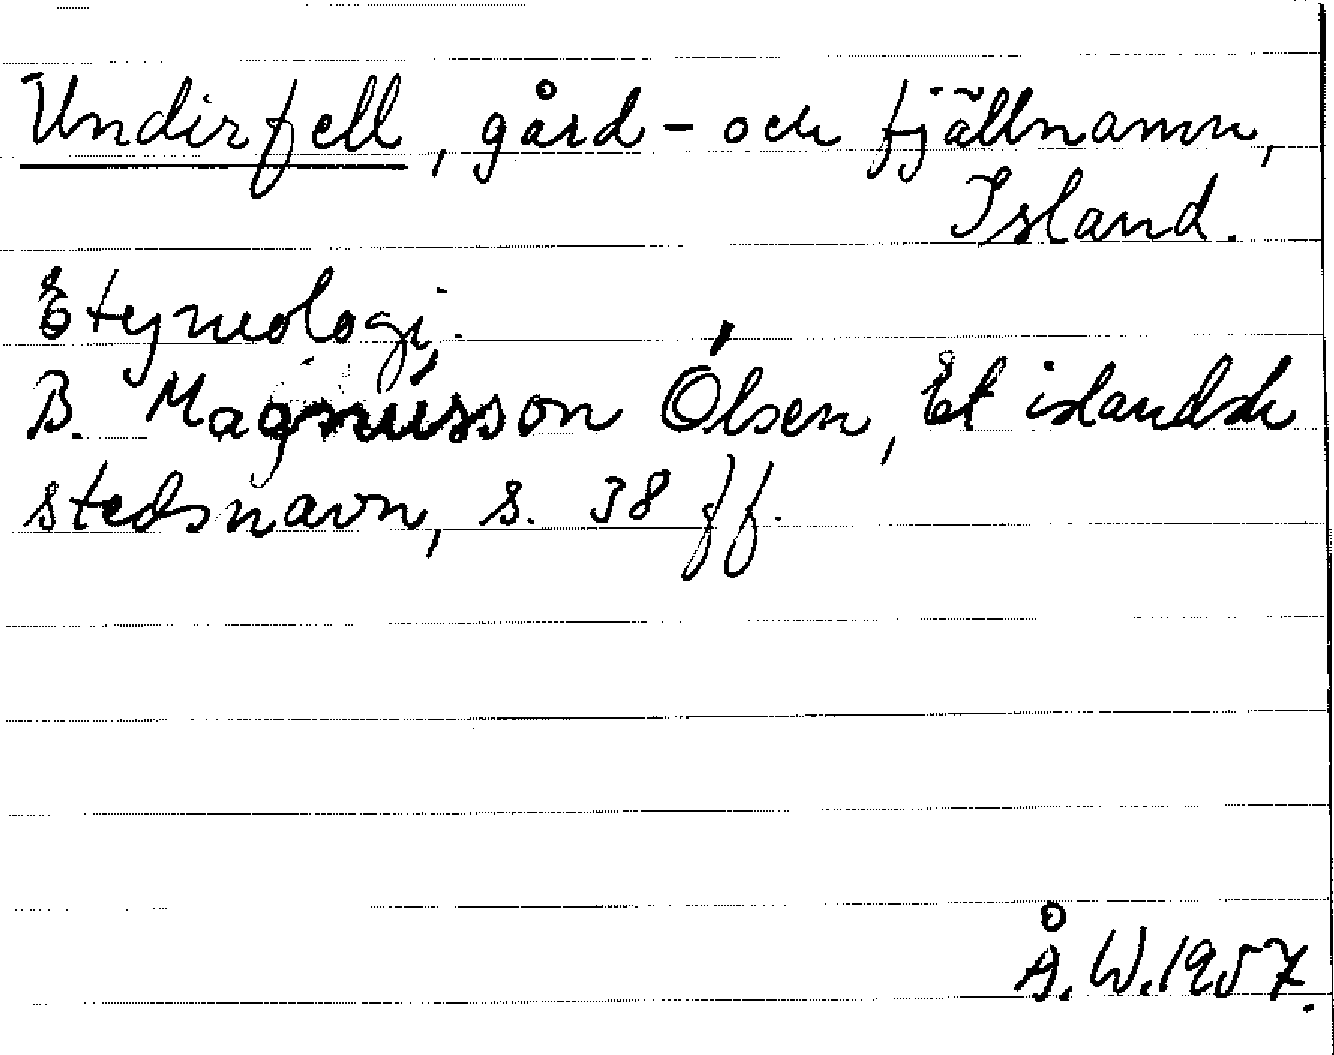 Undirfell, gård- och fjällnamn,
Island.
Etymologi.
B. Magnússon Ólsen, Et islandsk
stedsnavn, s. 38 ff.
Å. W. 1957.